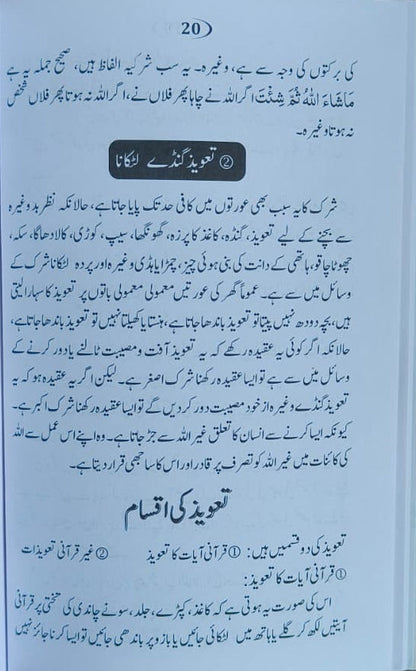 20
کی برکتوں کی وجہ سے ہے، وغیرہ۔ یہ سب شرکیہ الفاظ ہیں، صحیح جملہ یہ ہے
مَاشَاءَ اللہُ ثُمَّ شِئْتَ اگر اللہ نے چاہا پھر فلاں نے، اگر اللہ نہ ہوتا پھر فلاں شخص
نہ ہوتا وغیرہ۔
② تعویذ گنڈے لٹکانا
شرک کا یہ سبب بھی عورتوں میں کافی حد تک پایا جاتا ہے، حالانکہ نظر بد وغیرہ
سے بچنے کے لیے تعویذ، گنڈہ، کاغذ کا پرزہ، گھونگھا، سیپ، کوڑی، کالا دھاگا، سکہ،
چھوٹا چاقو، ہاتھی کے دانت کی بنی ہوئی چیز، چمڑا یا ہڈی وغیرہ اور پردہ لٹکانا شرک کے
وسائل میں سے ہے۔ عموماً گھر کی عورتیں معمولی معمولی باتوں پر تعویذ کا سہارا لیتی
ہیں، بچہ دودھ نہیں پیتا تو تعویذ باندھا جاتا ہے، ہنستا یا کھیلتا نہیں تو تعویذ باندھا جاتا ہے،
حالانکہ اگر کوئی یہ عقیدہ رکھے کہ یہ تعویذ آفت و مصیبت ٹالنے یا دور کرنے کے
وسائل میں سے ہے تو ایسا عقیدہ رکھنا شرک اصغر ہے۔ لیکن اگر یہ عقیدہ ہو کہ یہ
تعویذ گنڈے وغیرہ از خود مصیبت دور کر دیں گے تو ایسا عقیدہ رکھنا شرک اکبر ہے۔
کیونکہ ایسا کرنے سے انسان کا تعلق غیر اللہ سے جڑ جاتا ہے۔ وہ اپنے اس عمل سے اللہ
کی کائنات میں غیر اللہ کو تصرف پر قادر اور اس کا ساجھی قرار دیتا ہے۔
تعویذ کی اقسام
تعویذ کی دو قسمیں ہیں: ① قرآنی آیات کا تعویذ ② غیر قرآنی تعویذات
① قرآنی آیات کا تعویذ:
اس کی صورت یہ ہوتی ہے کہ کاغذ، کپڑے، جلد، سونے چاندی کی تختی پر قرآنی
آیتیں لکھ کر گلے یا ہاتھ میں لٹکائی جائیں یا بازو پر باندھی جائیں تو ایسا کرنا جائز نہیں